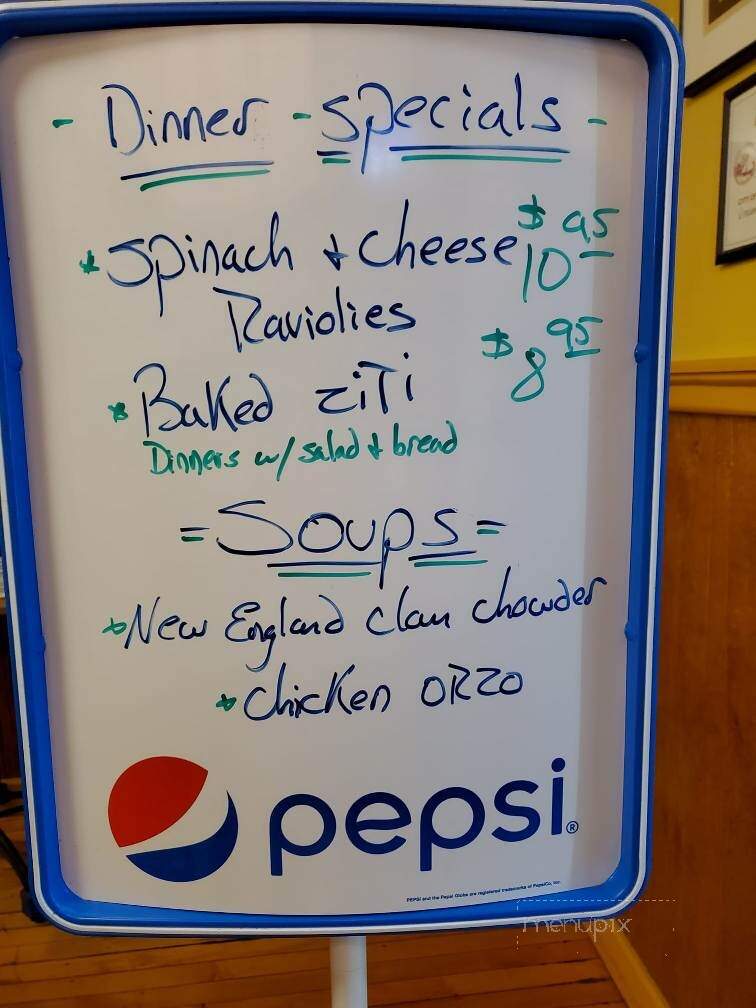 - Dinner - Specials -
* Spinach + Cheese $10.95
Raviolies
* Baked ziti $8.95
Dinners w/ salad + bread
= Soups =
* New England clam chowder
* Chicken ORZO
pepsi®
PEPSI and the Pepsi Globe are registered trademarks of PepsiCo, Inc.
menupix